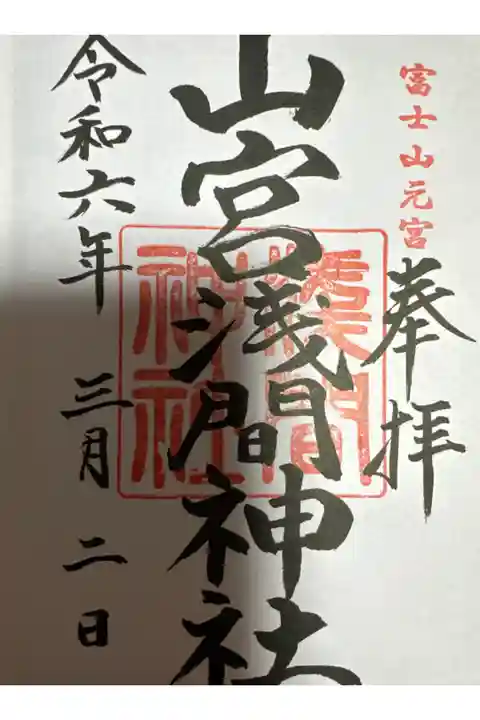 富士山元宮
奉拝
山宮浅間神社
浅間
神社
令和六年 三月 二日